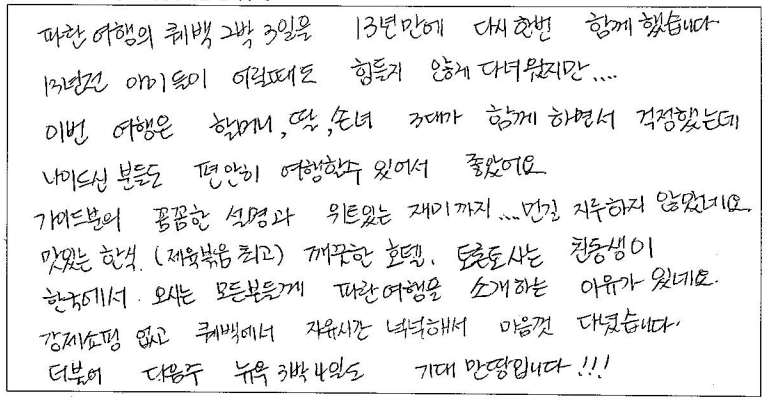 파란여행의 퀘백 2박 3일을 13년만에 다시한번 함께 했습니다
13년전 아이들이 어릴때도 힘들지 않게 다녀왔지만....
이번 여행은 할머니, 딸, 손녀 3대가 함께 하면서 걱정했는데
나이드신 분들도 편안히 여행할수 있어서 좋았어요
가이드분의 꼼꼼한 설명과 위트있는 재미까지...먼길 지루하지 않았네요.
맛있는 한식. (제육볶음 최고) 깨끗한 호텔. 토론토사는 친동생이
한국에서 오시는 모든분들께 파란여행을 소개하는 이유가 있네요.
강제쇼핑 없고 퀘백에서 자유시간 넉넉해서 마음껏 다녔습니다.
더불어 다음주 뉴욕 3박4일도 기대 만땅입니다!!!